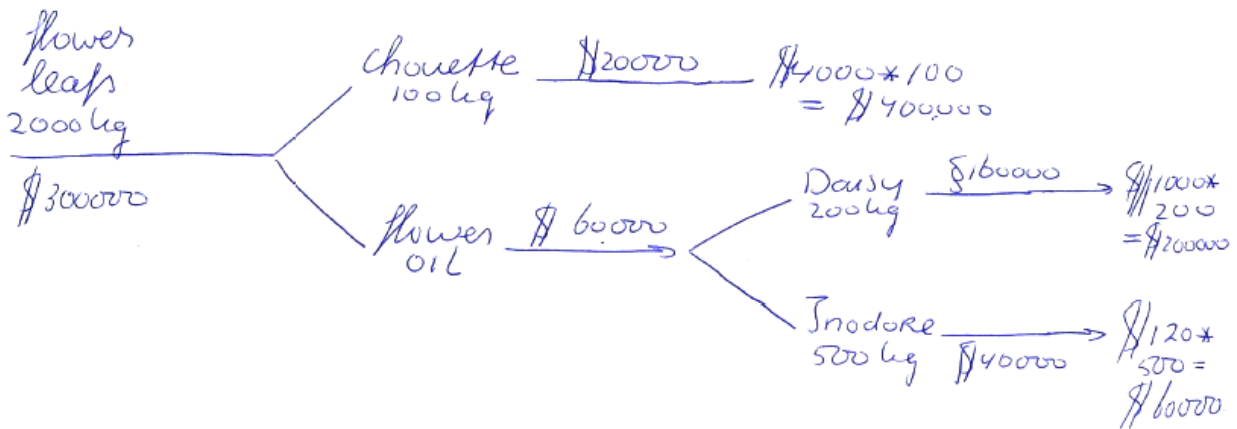 flower
leafs
2000kg
$300000
Chouette
100kg
$20000
$4000*100
= $400.000
flower
OIL
$60.000
Daisy
200kg
$160000
$1000*
200
=$200000
Inodore
500kg
$40000
$120*
500=
$60000